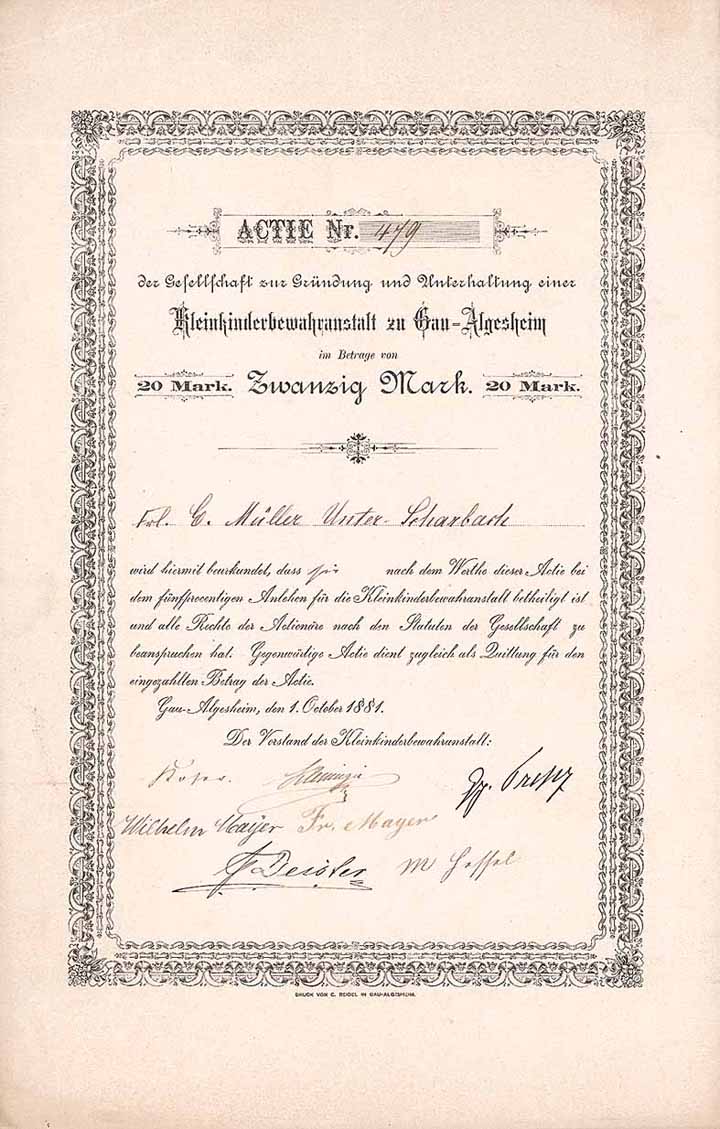 ACTIE Nr. 479
der Gesellschaft zur Gründung und Unterhaltung einer
Kleinkinderbewahranstalt zu Gau-Algesheim
im Betrage von
20 Mark. Zwanzig Mark. 20 Mark.
Frl. C. Müller Unter-Scharbach
wird hiermit beurkundet, dass sie nach dem Werthe dieser Actie bei
dem fünfprocentigen Anlehen für die Kleinkinderbewahranstalt betheiligt ist
und alle Rechte der Actionäre nach den Statuten der Gesellschaft zu
beanspruchen hat. Gegenwärtige Actie dient zugleich als Quittung für den
eingezahlten Betrag der Actie.
Gau-Algesheim, den 1. October 1881.
Der Vorstand der Kleinkinderbewahranstalt:
Wilhelm Mayer Fr. Mayer
Deister M Hassel
DRUCK VON C. REIDEL IN GAU-ALGESHEIM.